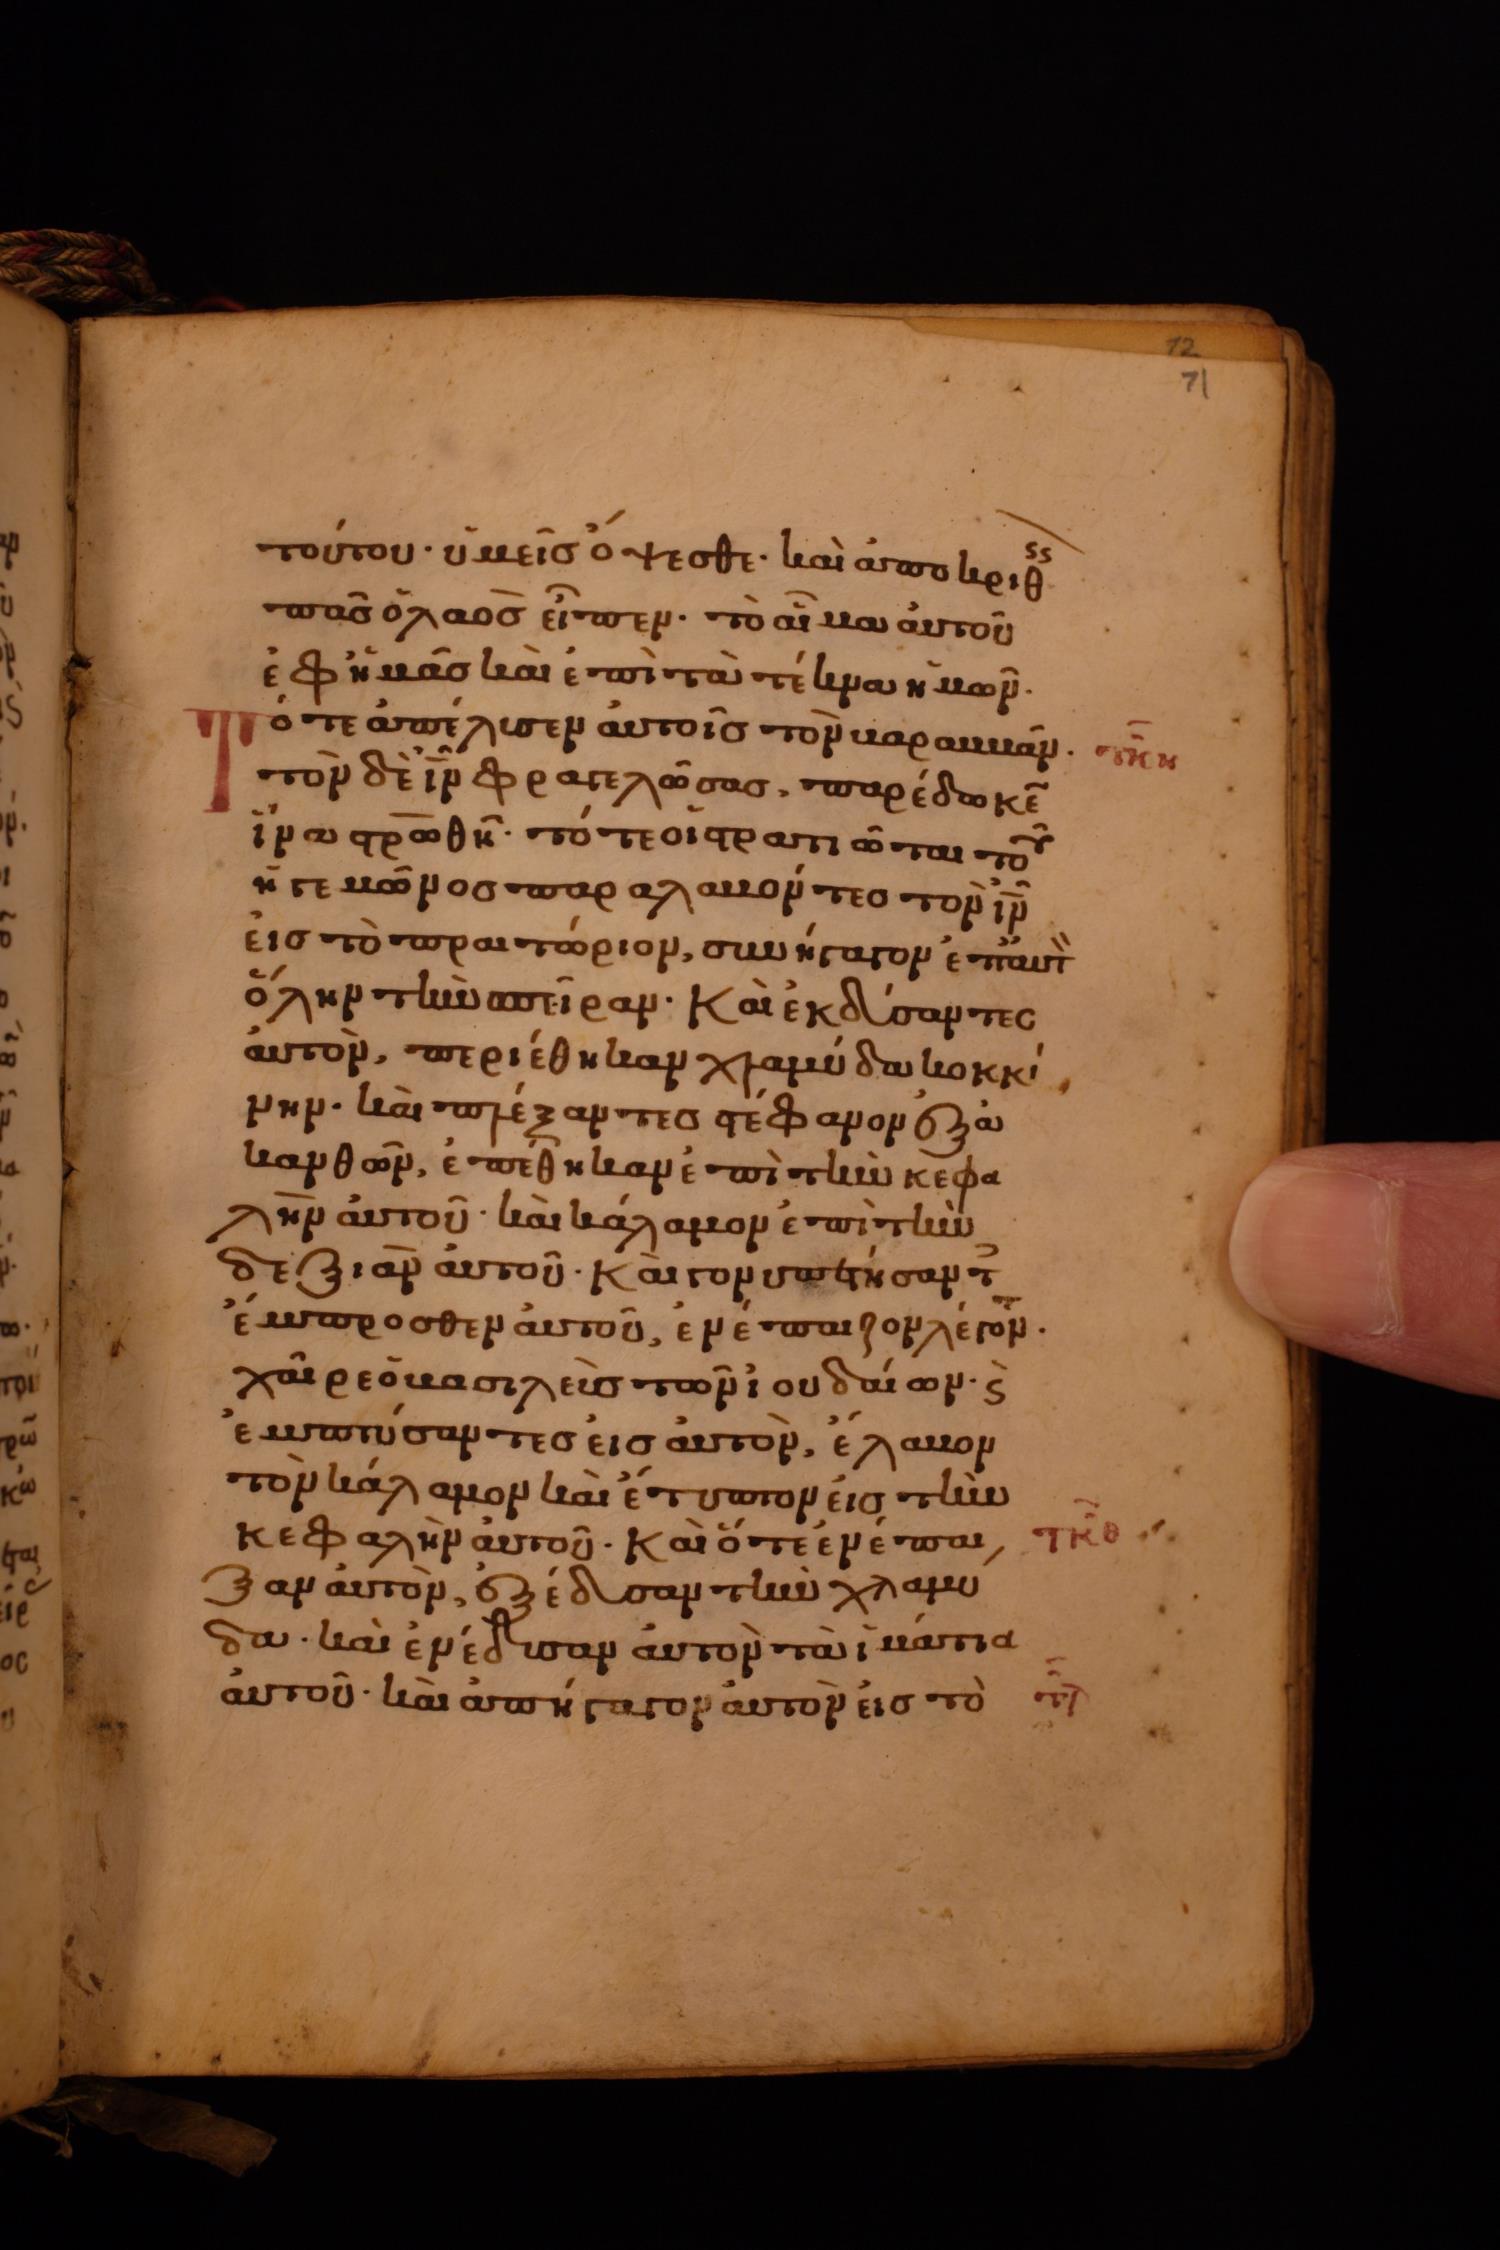 12
71
τούτου· ὑμεῖς ὄψεσθε· καὶ ἀποκριθςς
πᾶς ὁ λαὸς εἶπεν· τὸ αἷμα αὐτοῦ
ἐφ ἡμᾶς καὶ ἐπὶ τὰ τέκνα ἡμῶν·
Τότε ἀπέλυσεν αὐτοῖς τὸν βαραββᾶν· τκη
τὸν δὲ ἰν φραγελώσας, παρέδωκε
ἵνα στρωθῆ· τότε οἱ στρατιῶται τοῦ
ἡγεμῶνος παραλαβόντες τὸν ἰν
εἰς τὸ πραιτώριον, συνήγαγον ἐπ αυτ
ὅλην τὴν σπεῖραν· Καὶ ἐκδύσαντες
αὐτὸν, περιέθηκαν χλαμύδα κοκκί
νην· καὶ πλέξαντες στέφανον ἐξ ἀ
κανθῶν, ἐπέθηκαν ἐπὶ τὴν κεφα
λὴν αὐτοῦ· καὶ κάλαμον ἐπὶ τὴν
δεξιὰν αὐτοῦ· Καὶ γονυπετήσαντ
ἔμπροσθεν αὐτοῦ, ἐνέπαιζον λέγον·
χαῖρε ὁ βασιλεὺς τῶν ἰουδαίων· ϛ
ἐμπτύσαντες εἰς αὐτὸν, ἔλαβον
τὸν κάλαμον καὶ ἔτυπτον εἰς τὴν
κεφαλὴν αὐτοῦ· Καὶ ὅτε ἐνέπαι τκθ
ξαν αὐτὸν, ἐξέδυσαν τὴν χλαμύ
δα· καὶ ἐνέδυσαν αὐτὸν τὰ ἱμάτια
αὐτοῦ· καὶ ἀπήγαγον αὐτὸν εἰς τὸ τλ